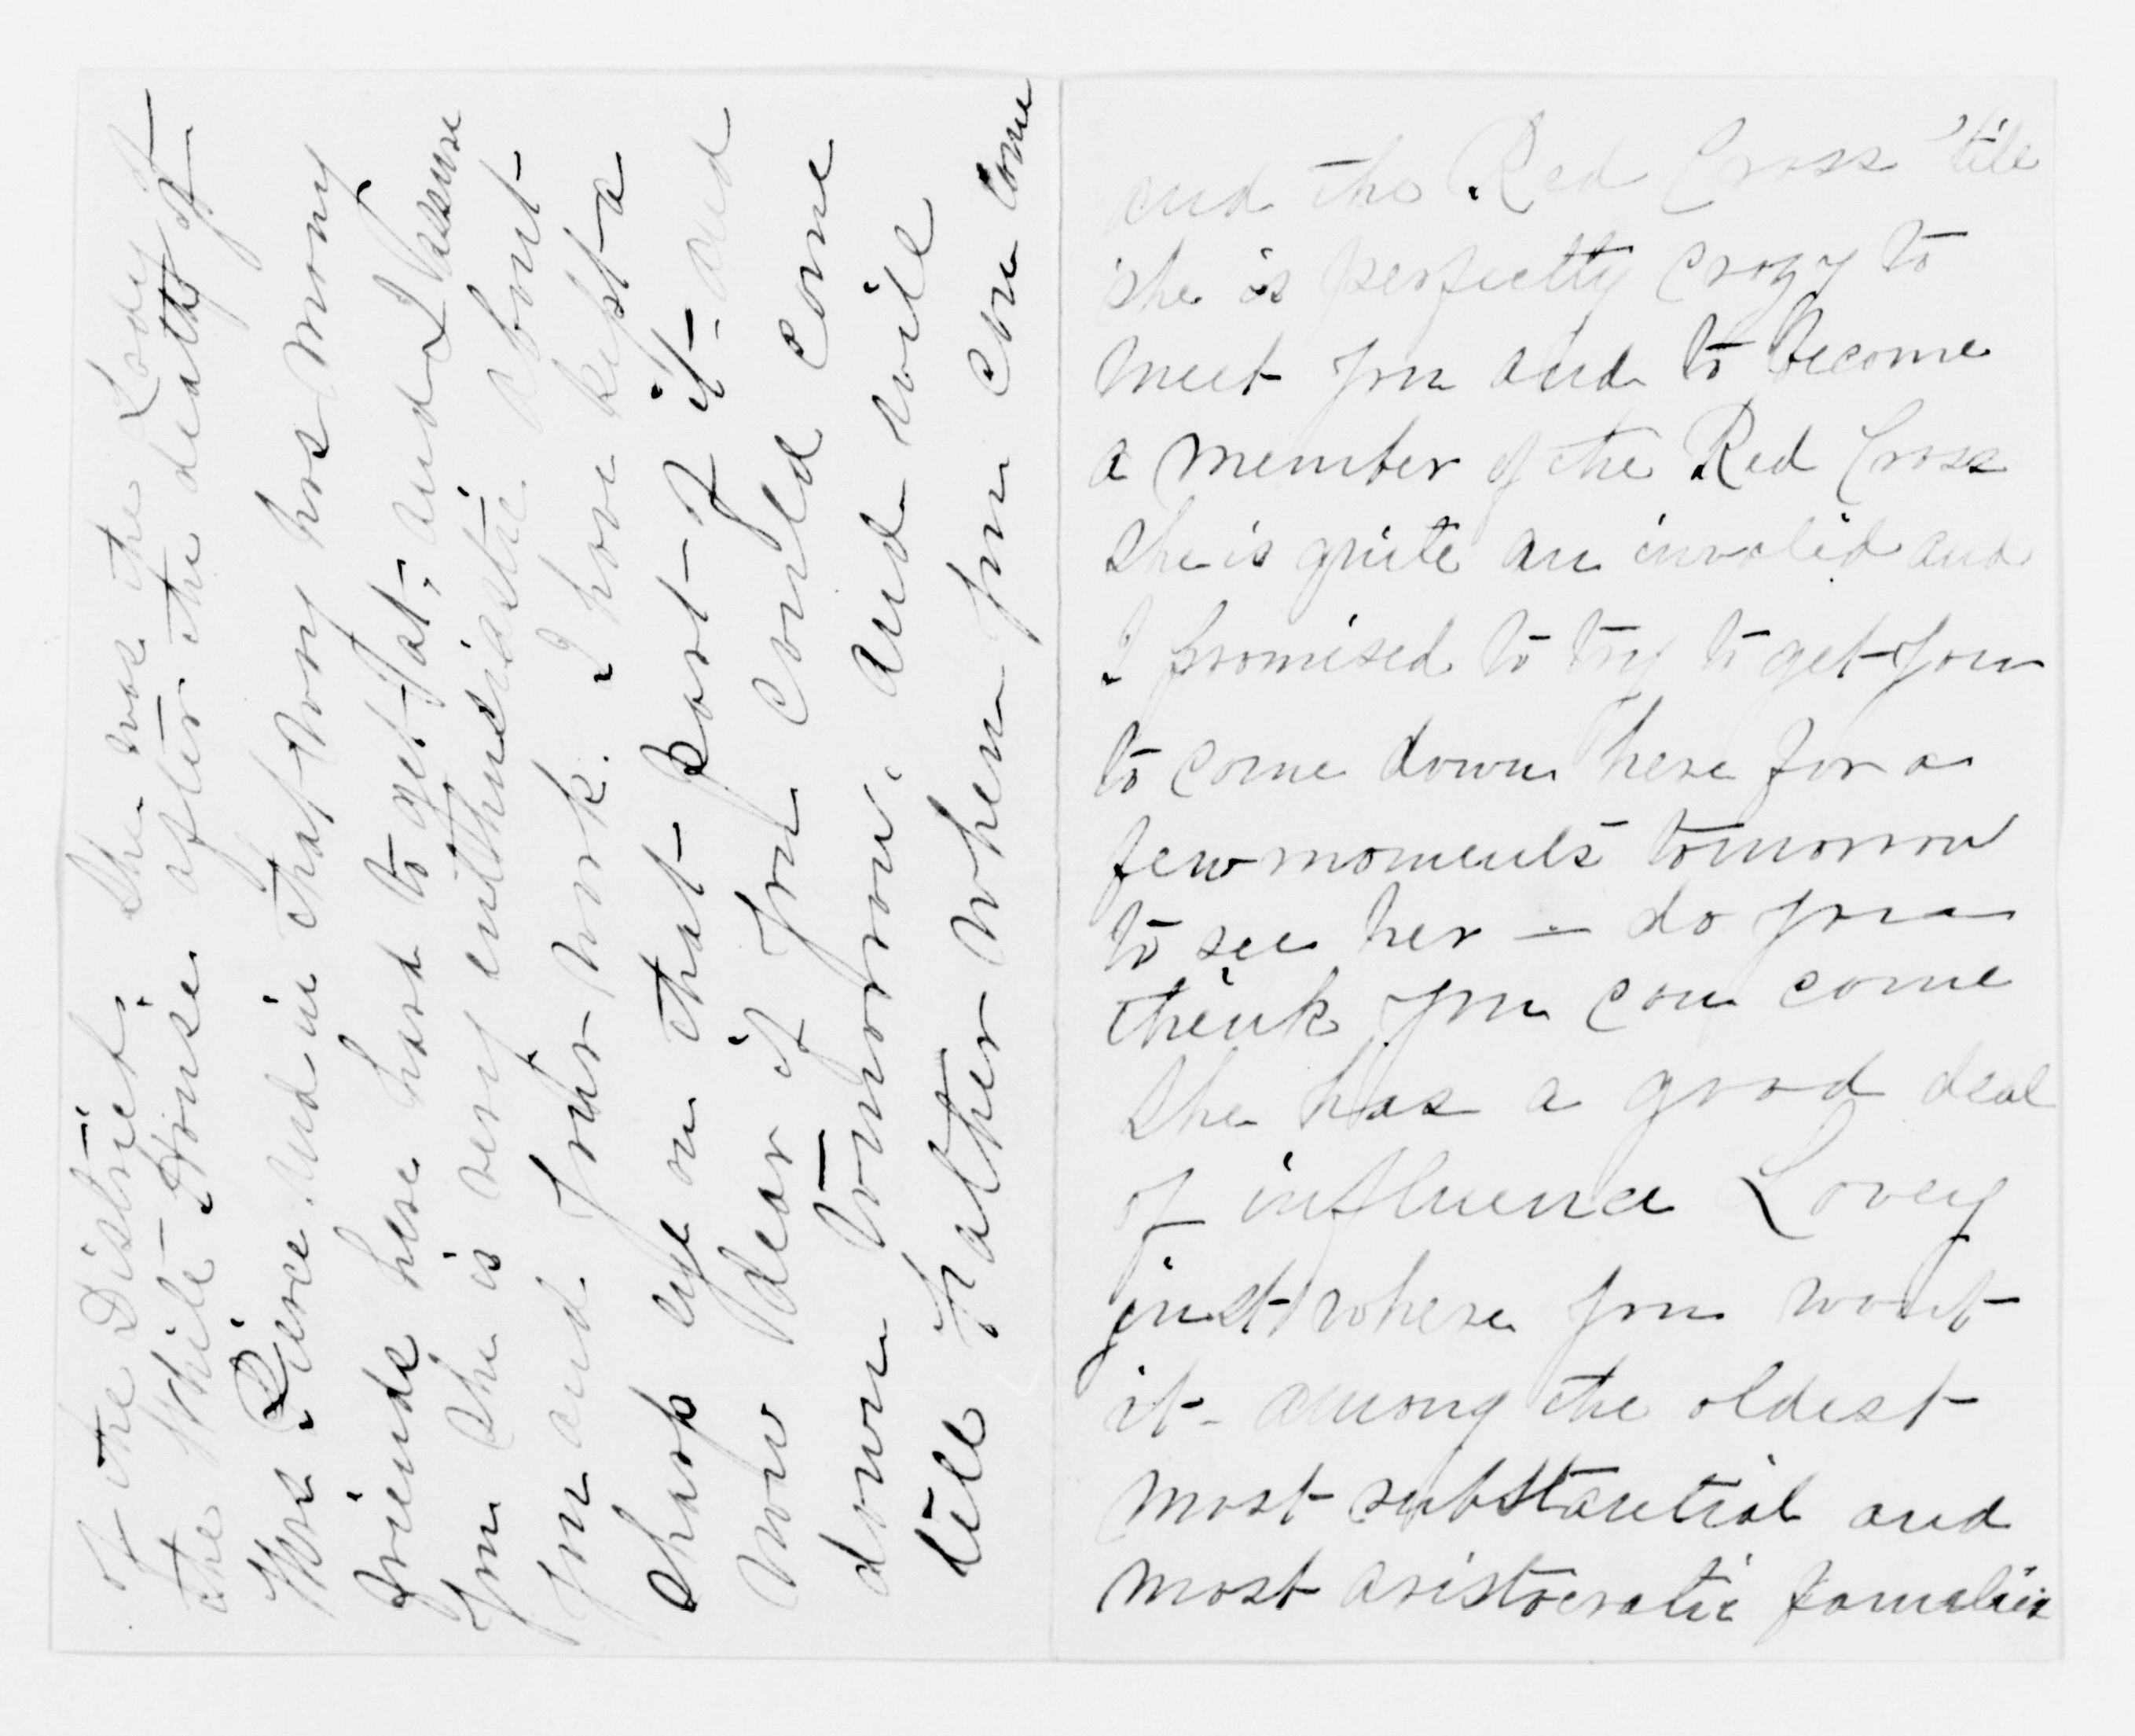 and the Red Cross 'till
she is perfectly crazy to
meet you and to become
a member of the Red Cross
she is quite an invalid and
I promised to try to get you
to come down here for a
few moments tomorrow
to see her — do you
think you can come
She has a good deal
of influence Lovey
just where you want
it - among the oldest
most substantial and
most aristocratic families
of the District. She was the Lady of
the White House after the death of
Mrs Pierce and in that way has many
friends here hard to get at, and I assure
you she is very enthusiastic about
you and your work. I have kept a
sharp eye on that part of it - and
now dear if you could come
down tomorrow, and will
tell Halther when you can come